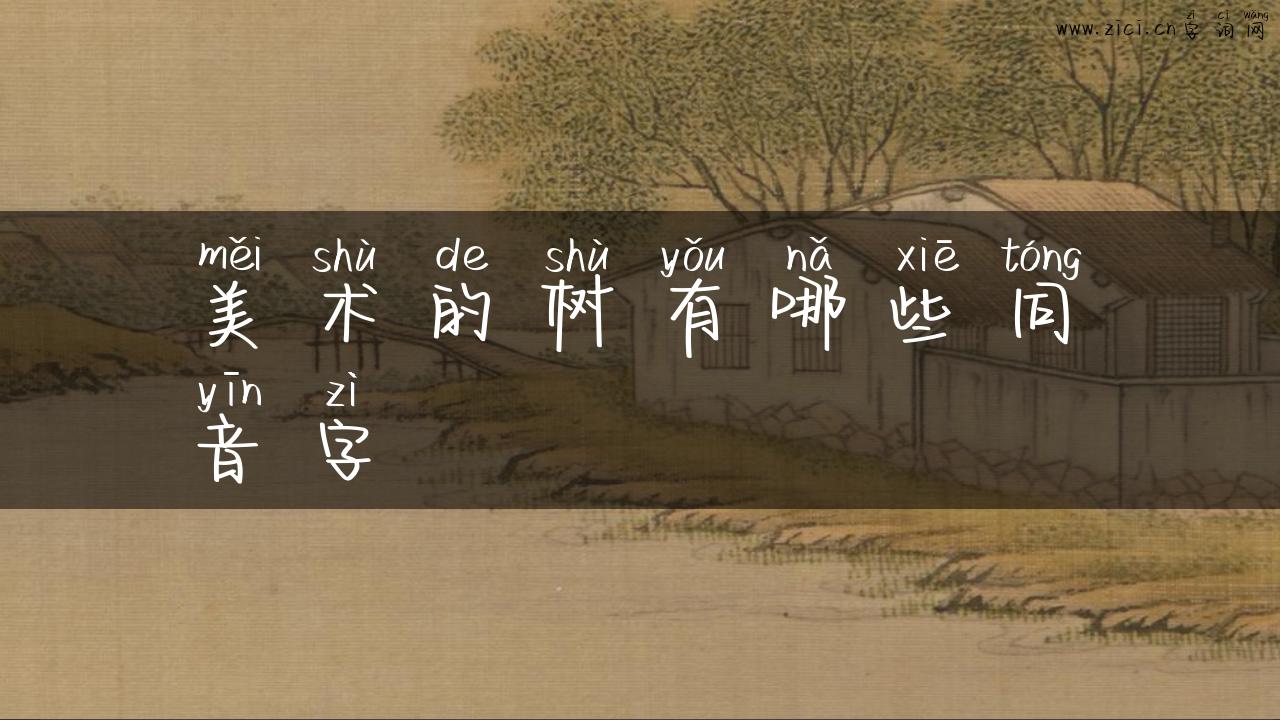 zì cí wǎng
www.zici.cn 字词网
měi shù de shù yǒu nǎ xiē tóng
美术的树有哪些同
yīn zì
音字